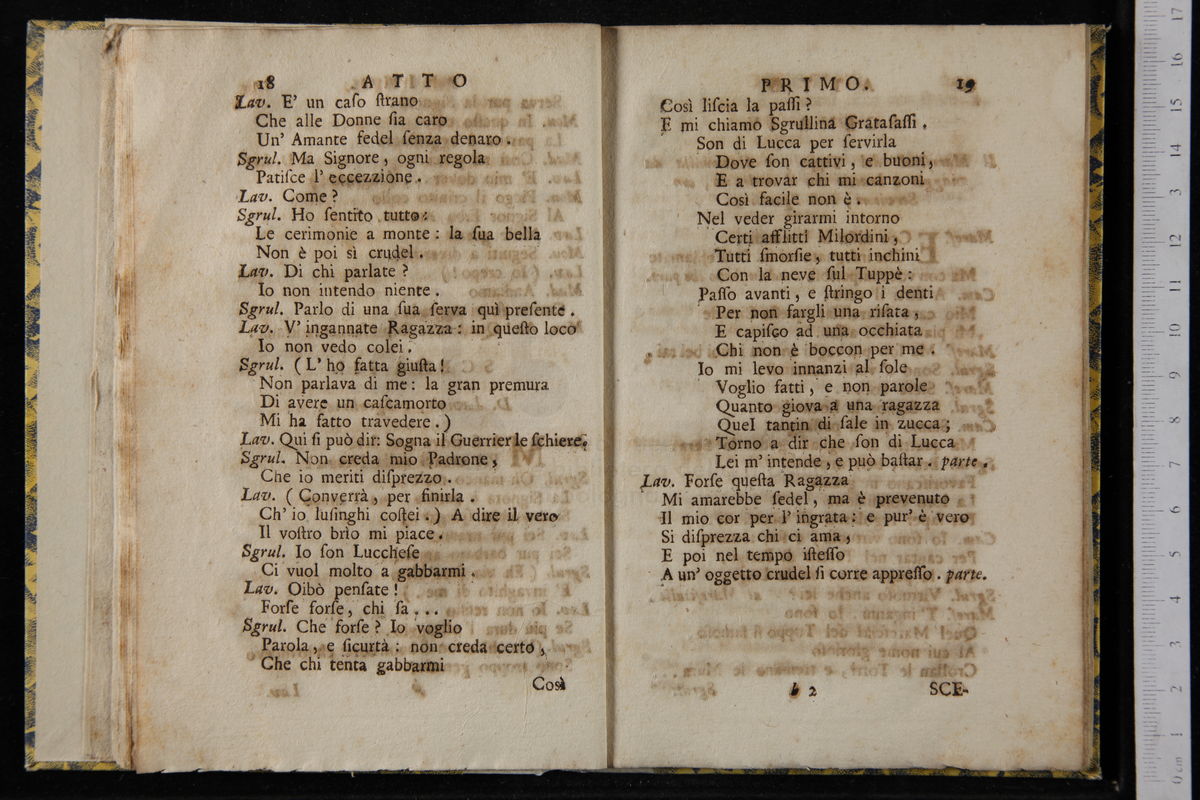 18 ATTO
Lav. E' un caſo ſtrano
Che alle Donne ſia caro
Un' Amante fedel ſenza denaro.
Sgrul. Ma Signore, ogni regola
Patiſce l' eccezzione.
Lav. Come?
Sgrul. Ho ſentito tutto:
Le cerimonie a monte: la ſua bella
Non è poi sì crudel.
Lav. Di chi parlate?
Io non intendo niente.
Sgrul. Parlo di una ſua ſerva quì preſente.
Lav. V' ingannate Ragazza: in queſto loco
Io non vedo colei.
Sgrul. (L' ho fatta giuſta!
Non parlava di me: la gran premura
Di avere un caſcamorto
Mi ha fatto travedere.)
Lav. Qui ſi può dir: Sogna il Guerrier le ſchiere.
Sgrul. Non creda mio Padrone,
Che io meriti diſprezzo.
Lav. (Converrà, per finirla.
Ch' io luſinghi coſtei.) A dire il vero
Il voſtro brìo mi piace.
Sgrul. Io ſon Luccheſe
Ci vuol molto a gabbarmi.
Lav. Oibò penſate!
Forſe forſe, chi ſa...
Sgrul. Che forſe? Io voglio
Parola, e ſicurtà: non creda certo,
Che chi tenta gabbarmi
Così
PRIMO. 19
Così liſcia la paſſi?
E mi chiamo Sgrullina Grataſaſſi.
Son di Lucca per ſervirla
Dove ſon cattivi, e buoni,
E a trovar chi mi canzoni
Così facile non è.
Nel veder girarmi intorno
Certi afflitti Milordini,
Tutti ſmorſie, tutti inchini
Con la neve ſul Tuppè:
Paſſo avanti, e ſtringo i denti
Per non fargli una riſata,
E capiſco ad una occhiata
Chi non è boccon per me.
Io mi levo innanzi al ſole
Voglio fatti, e non parole
Quanto giova a una ragazza
Quel tantin di ſale in zucca;
Torno a dir che ſon di Lucca
Lei m' intende, e può baſtar. parte.
Lav. Forſe queſta Ragazza
Mi amarebbe fedel, ma è prevenuto
Il mio cor per l' ingrata: e pur' è vero
Si diſprezza chi ci ama,
E poi nel tempo iſteſſo
A un' oggetto crudel ſi corre appreſſo. parte.
b 2 SCE-